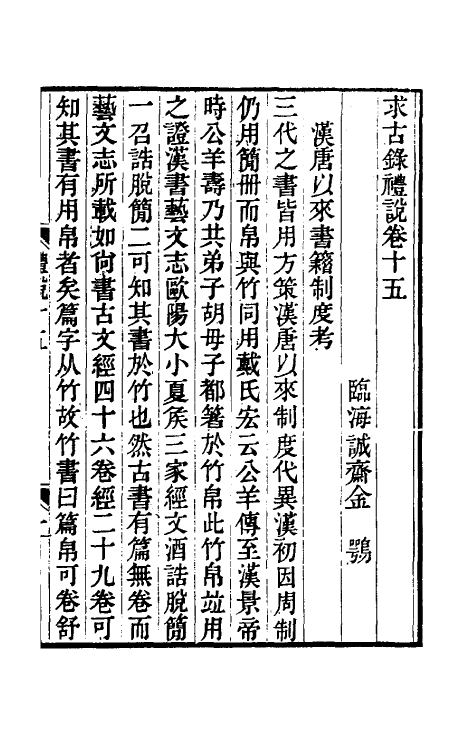 求古錄禮說卷十五
臨海誠齋金鶚
漢唐以來書籍制度考
三代之書皆用方策漢唐以來制度代異漢初因周制
仍用簡冊而帛與竹同用戴氏宏云公羊傳至漢景帝
時公羊壽乃共弟子胡毋子都箸於竹帛此竹帛竝用
之證漢書藝文志歐陽大小夏矦三家經文酒誥脫簡
一召誥脫簡二可知其書於竹也然古書有篇無卷而
藝文志所載如尙書古文經四十六卷經二十九卷可
知其書有用帛者矣篇字从竹故竹書曰篇帛可卷舒
禮說十五